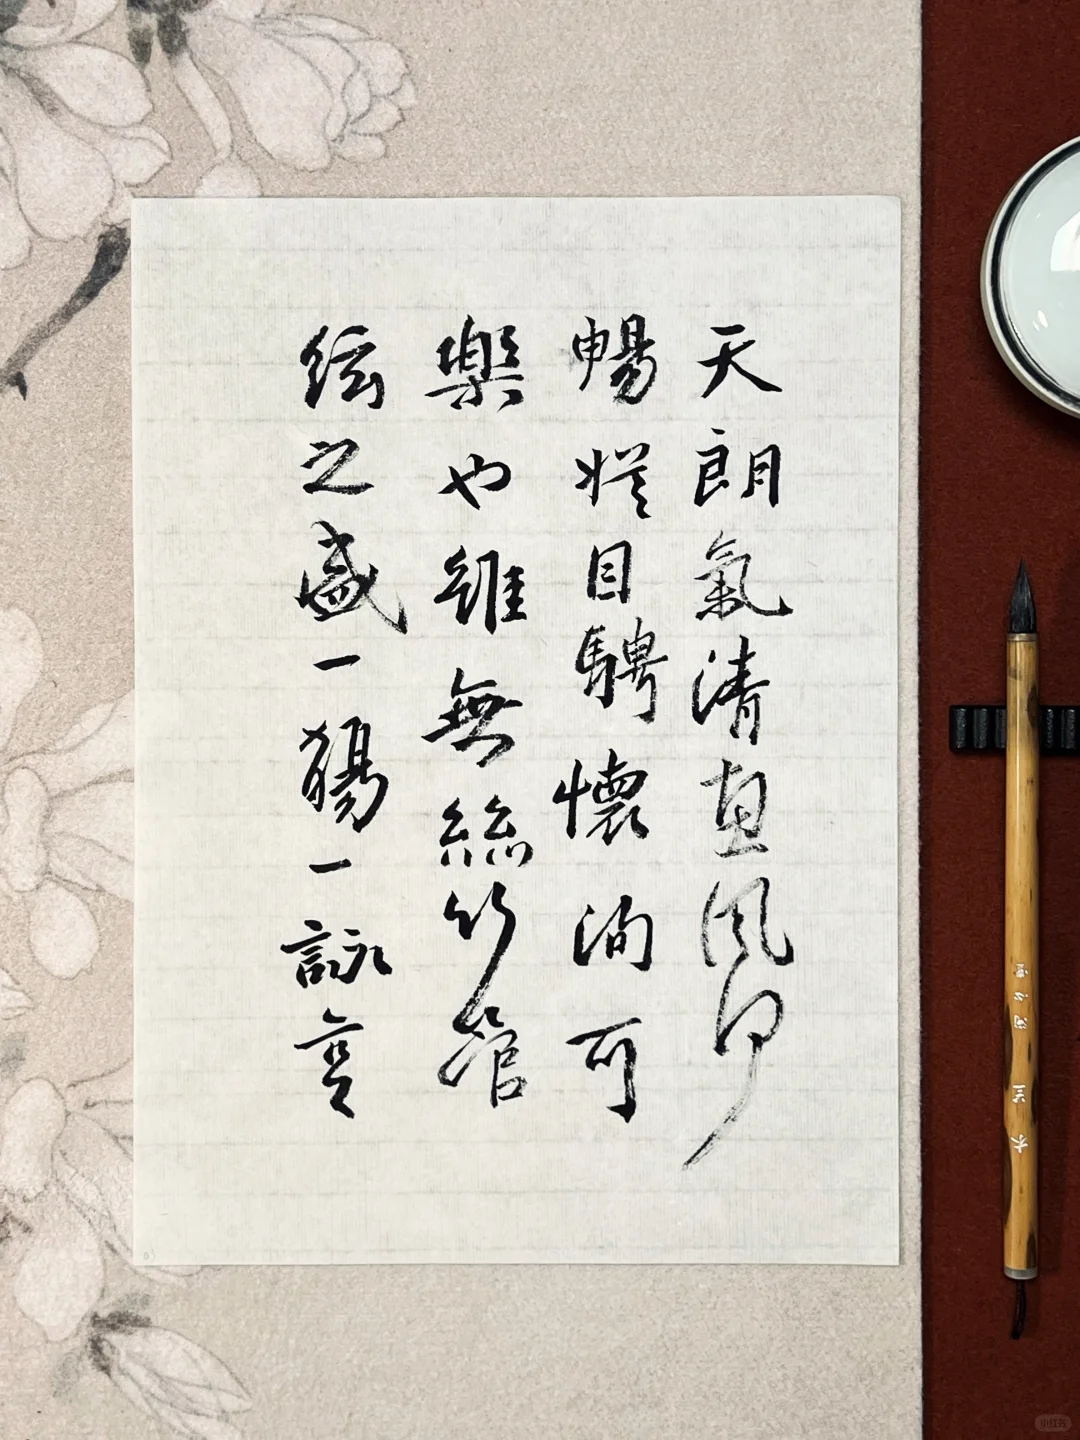 天朗氣清惠風和
暢目騁懷洵可
樂也雖無絲竹管
絃之盛一觴一詠
小红书